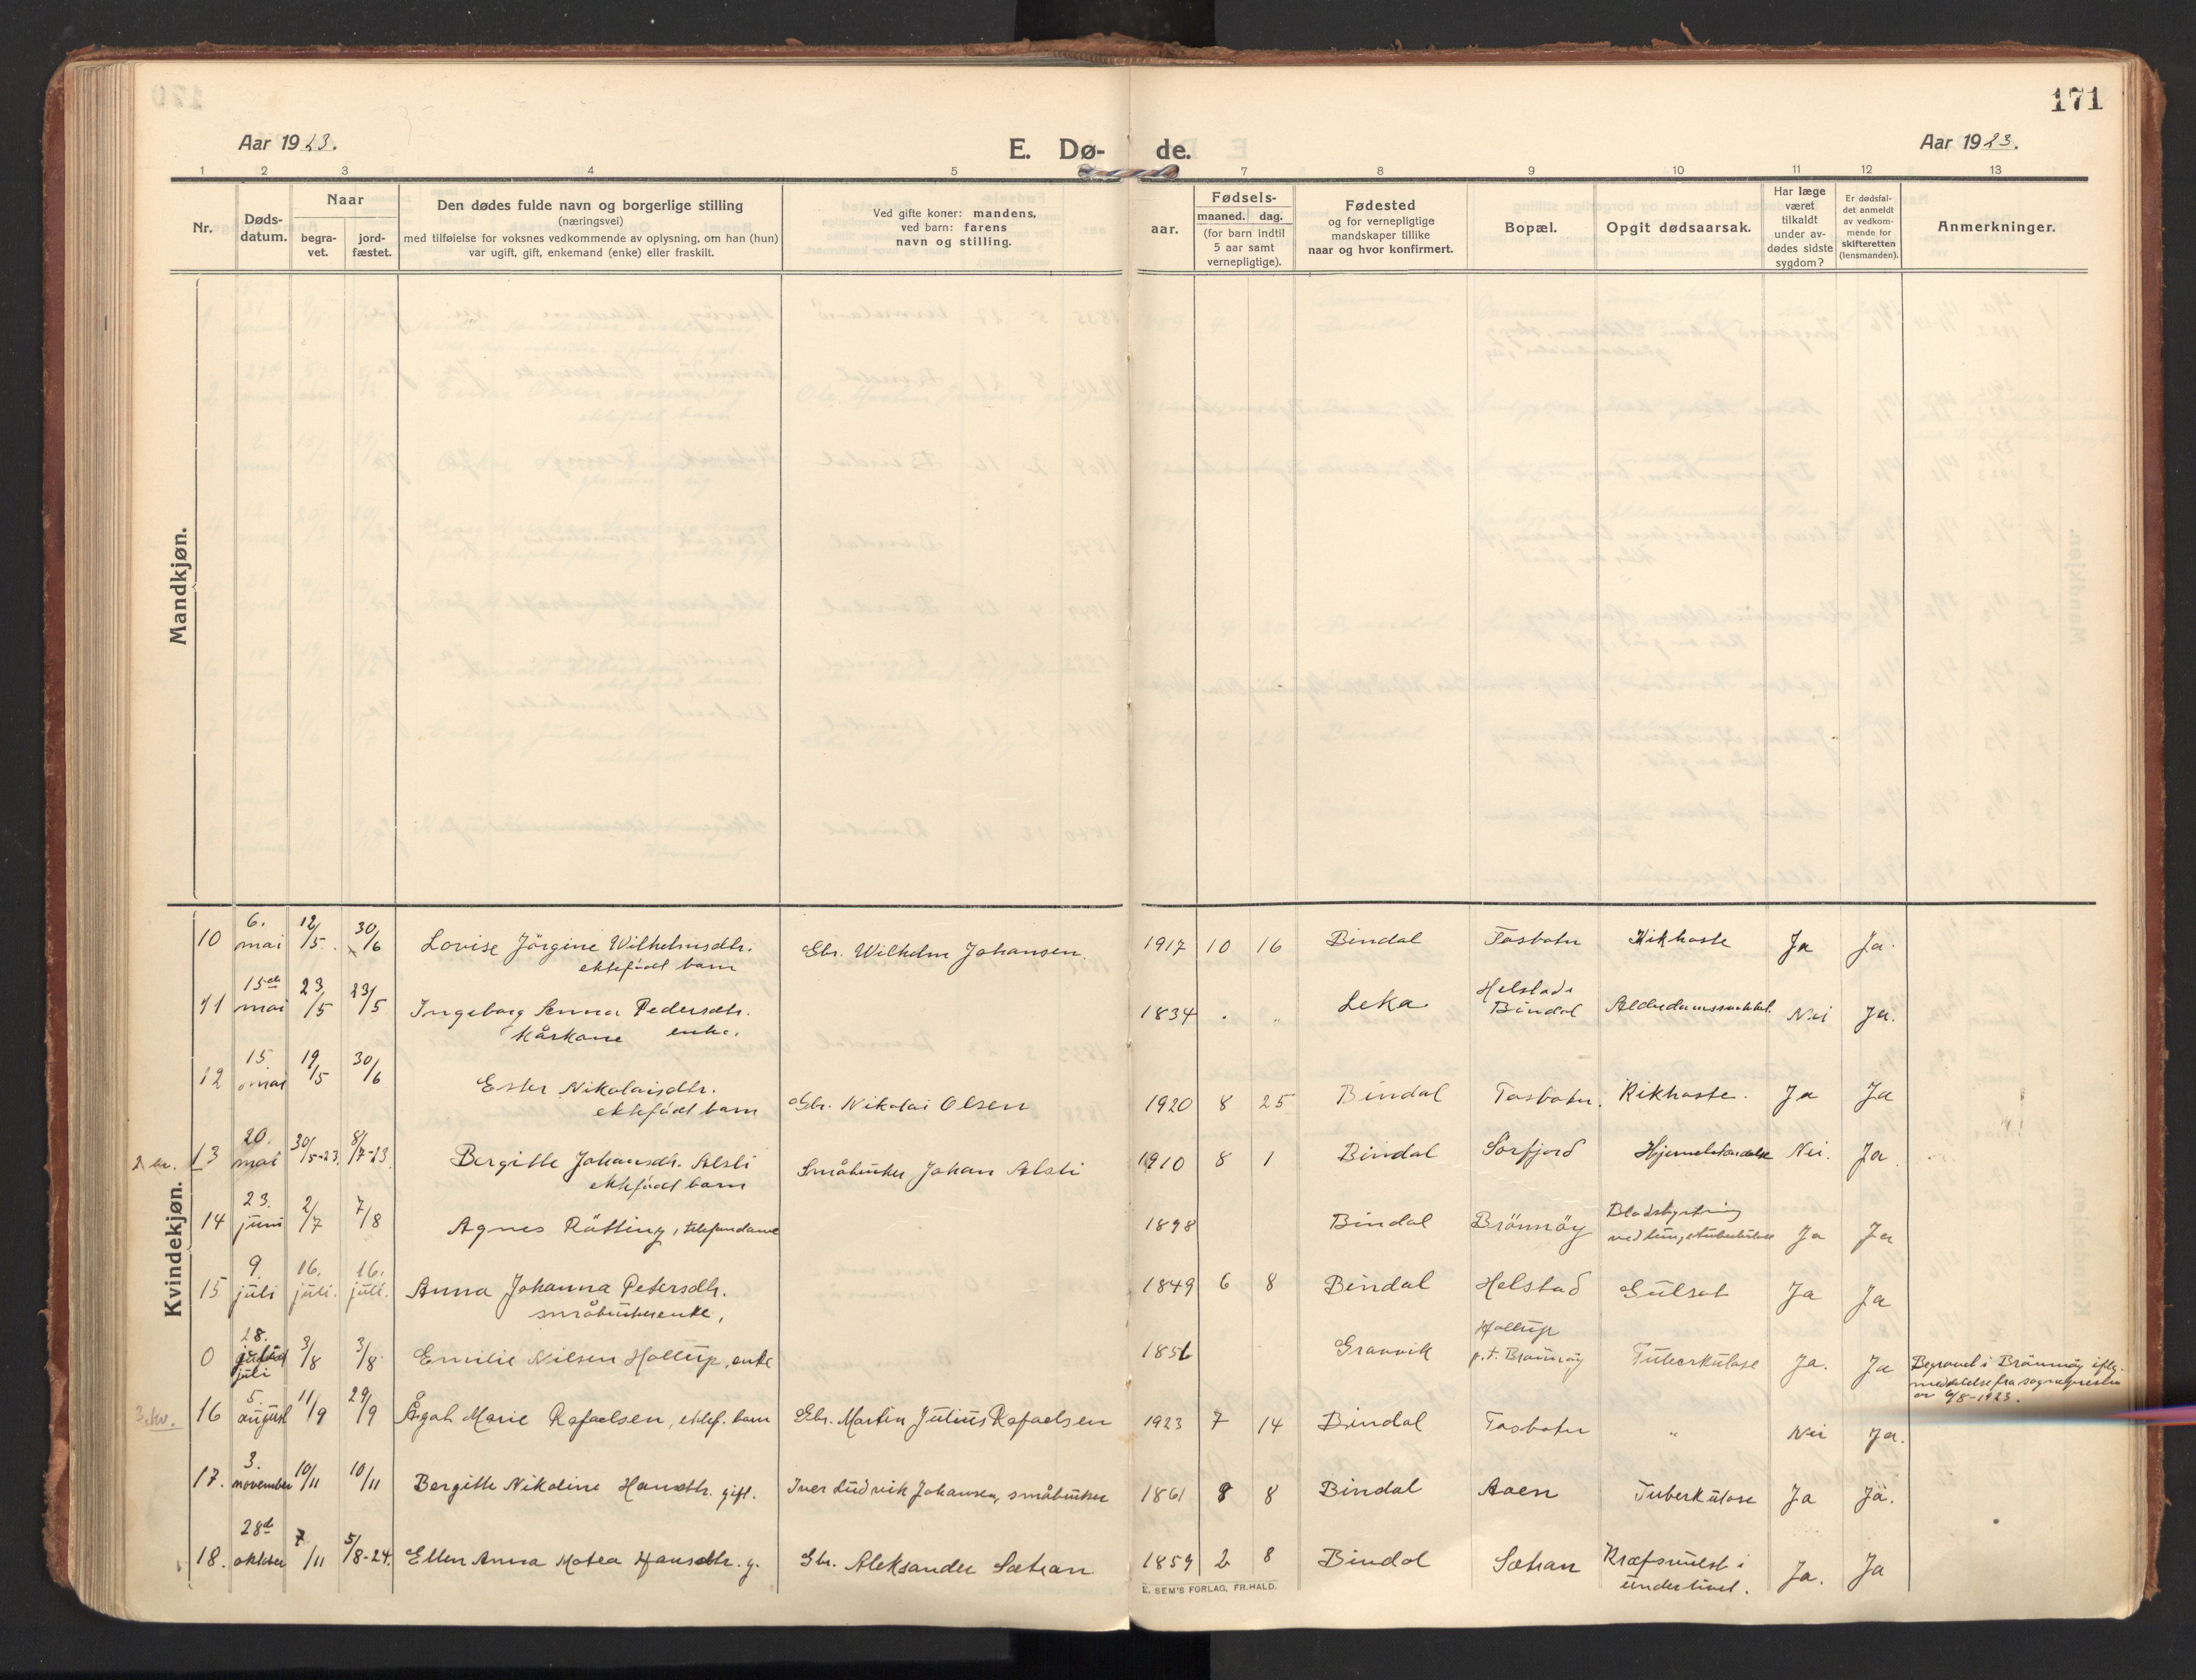 171
Aar 1923.
E. Dø- de.
Aar 1923.
1 2 3 4 5 7 8 9 10 11 12 13
Nr.
Døds-
datum.
Naar
begra-
vet.
jord-
fæstet.
Den dødes fulde navn og borgerlige stilling
(næringsvei)
med tilføielse for voksnes vedkommende av oplysning, om han (hun)
var ugift, gift, enkemand (enke) eller fraskilt.
Ved gifte koner: mandens,
ved barn: farens
navn og stilling.
aar.
Fødsels-
maaned. dag.
(for barn indtil
5 aar samt
vernepligtige).
Fødested
og for vernepligtige
mandskaper tillike
naar og hvor konfirmert.
Bopæl.
Opgit dødsaarsak.
Har læge
været
tilkaldt
under av-
dødes sidste
sygdom?
Er dødsfal-
det anmeldt
av vedkom-
mende for
skifteretten
(lensmanden).
Anmerkninger.
Mandkjøn.
Kvindekjøn.
10 6. mai 12/5 30/6 Lovise Jörgine Wilhelmsdtr. Gbr. Wilhelm Johansen. 1917 10 16 Bindal Tosbotn Kikhoste Ja Ja.
ektefödt barn
11 15de mai 23/5 23/5 Ingeborg Anna Pedersdtr. 1834 . „ Leka Helstad Bindal Nei Ja.
Kårkone enke.
12 15. mai 19/5 30/6 Ester Nikolaisdtr. Gbr. Nikolai Olsen 1920 8 25 Bindal Tosbotn. Kikhoste. Ja Ja
ektefödt barn
13 20. mai 30/5-23 8/7-23 Bergitte Johansdtr. Alsli Småbruker Johan Alsli 1910 8 1 Bindal Sörfjord Nei. Ja.
ektefödt barn
14 23. juni 2/7 7/8 Agnes Rötting, telefondame 1898 Bindal Brönnöy Blodstyrtning ved lungetuberkulose Ja Ja
15 9. juli 16. juli. 16. juli. Anna Johanna Petersdtr. 1849 6 8 Bindal Helstad Gulsot Ja Ja
småbrukerenke,
0 28. juli 3/8 3/8 Emilie Nilsen Hollup, enke 1851 Granvik Hollup p.t. Brönnöy Tuberkulose Ja. Ja Begravet i Brönnöy iflg.
meddelelse fra sognepresten
av 6/8-1923.
3 kv. 16 5. august 11/9 29/9 Ågot Marie Rafaelsen, ektef. barn Gbr. Martin Julius Rafaelsen 1923 7 14 Bindal Tosbotn „ Nei Ja.
17. 3. november 10/11 10/11 Bergitte Nikoline Hansdtr. gift. Iver Ludvik Johansen, småbruker 1861 8 8 Bindal Aaen Tuberkulose Ja Ja.
18. 28de oktober 7/11 5/8-24. Ellen Anna Motea Hansdtr. g. Gbr. Aleksander Sætran 1859 2 8 Bindal Sætran Kræfsvulst i Ja. Ja
underlivet.
E. SEM'S FORLAG, FR.HALD.